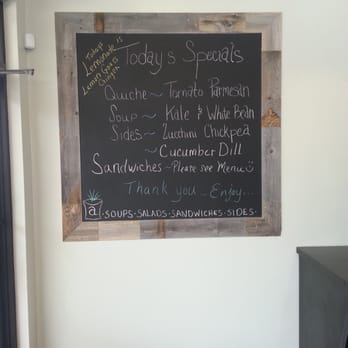 Today's
Lemonade is
Lemon Grass
Ginger
Today's Specials
Quiche ~ Tomato Parmesan
Soup ~ Kale & White Bean
Sides ~ Zucchini Chickpea
~ Cucumber Dill
Sandwiches ~ Please see Menu
Thank you ... Enjoy....
a
·SOUPS·SALADS·SANDWICHES·SIDES·